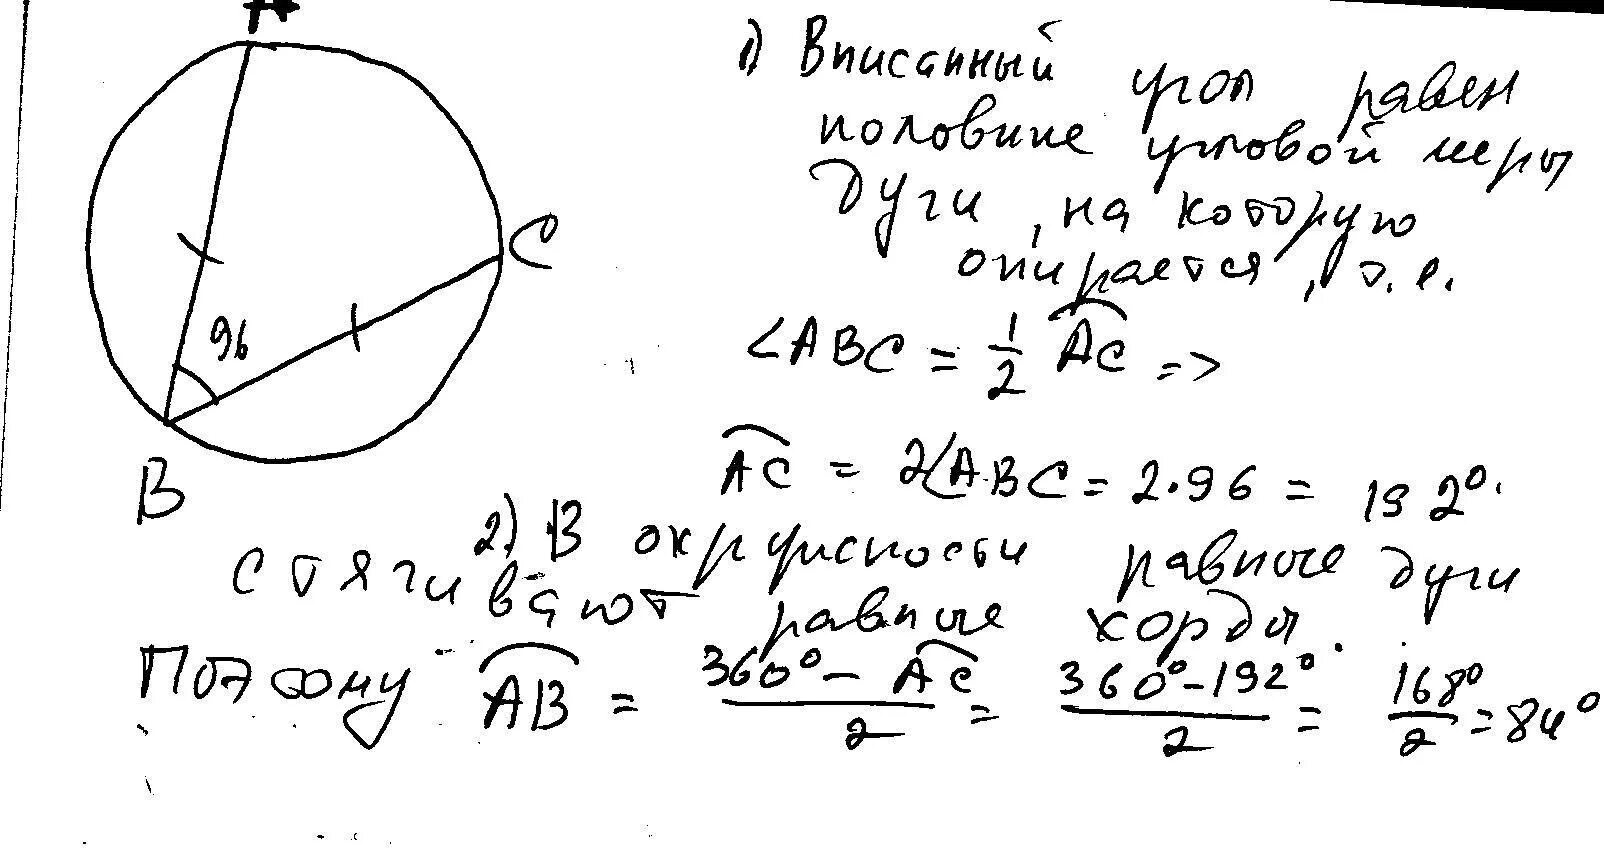 A
C
96
B
1) Вписанный угол равен
половине угловой меры
дуги, на которую
опирается, т.е.
<ABC = 1/2 AC =>
AC = 2<ABC = 2·96 = 192°.
2) В окружности равные дуги
стягивают равные хорды.
Поэтому AB = (360° - AC)/2 = (360° - 192°)/2 = 168°/2 = 84°